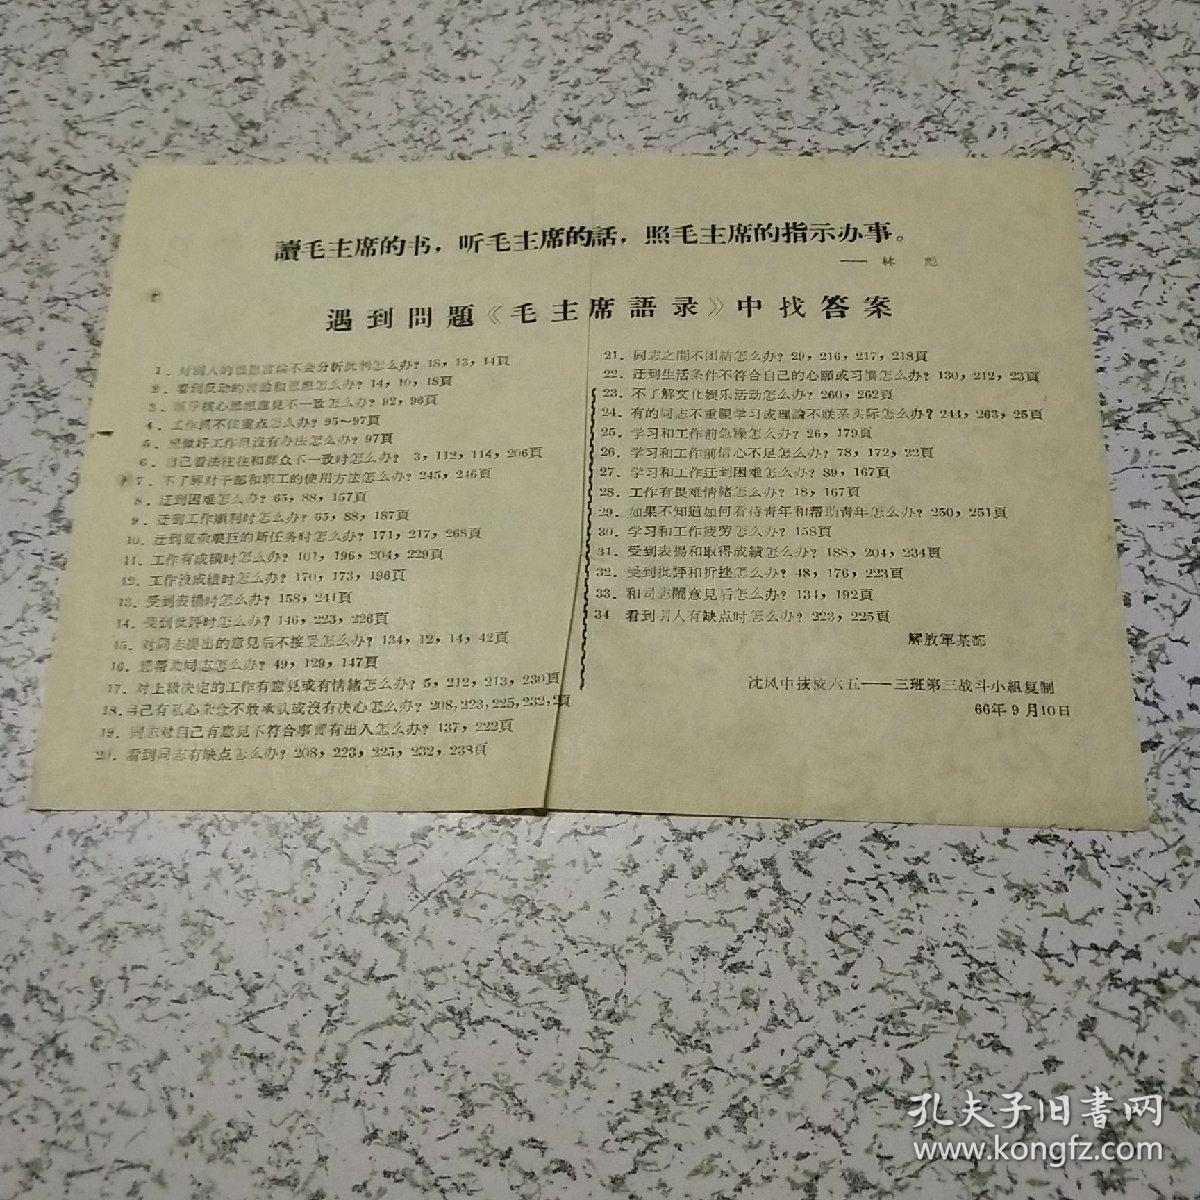 讀毛主席的书，听毛主席的話，照毛主席的指示办事。
——林 彪
遇到問題《毛主席語录》中找答案
1．对别人的思想言論不会分析批判怎么办？18，13，14頁
2．看到反动的言論和思想怎么办？14，10，18頁
3．领导核心思想意見不一致怎么办？92，96頁
4．工作抓不住重点怎么办？95～97頁
5．想做好工作但沒有办法怎么办？97頁
6．自己看法往往和群众不一致时怎么办？ 3，112，114，206頁
7．不了解对干部和职工的使用方法怎么办？245，246頁
8．迂到困难怎么办？65，88，157頁
9．迂到工作順利时怎么办？65，88，187頁
10．迂到复杂艰巨的新任务时怎么办？171，217，268頁
11．工作有成績时怎么办？101，196，204，229頁
12．工作沒成績时怎么办？170，173，196頁
13．受到表揚时怎么办？158，241頁
14．受到批評时怎么办？146，223，226頁
15．对同志提出的意見后不接受怎么办？134，12，14，42頁
16．想帮助同志怎么办？49，129，147頁
17．对上級决定的工作有意見或有情緒怎么办？5，212，213，230頁
18．自己有私心杂念不敢承认或沒有决心怎么办？208，223，225，232，2頁
19．同志对自己有意見不符合事实有出入怎么办？137，222頁
20．看到同志有缺点怎么办？208，223，225，232，238頁
21．同志之間不团結怎么办？29，216，217，218頁
22．迂到生活条件不符合自己的心願或习慣怎么办？130，212，23頁
23．不了解文化娱乐活动怎么办？260，262頁
24．有的同志不重視学习或理論不联系实际怎么办？244，263，25頁
25．学习和工作前急躁怎么办？26，179頁
26．学习和工作前信心不足怎么办？78，172，22頁
27．学习和工作迂到困难怎么办？89，167頁
28．工作有畏难情緒怎么办？18，167頁
29．如果不知道如何看待青年和帮助青年怎么办？250，251頁
30．学习和工作疲劳怎么办？158頁
31．受到表揚和取得成績怎么办？188，204，234頁
32．受到批評和折挫怎么办？48，176，223頁
33．和同志鬧意見后怎么办？134，192頁
34 看到別人有缺点时怎么办？223，225頁
解放軍某部
沈风中技校六五——三班第三战斗小組复制
66年9月10日
孔夫子旧書网
www.kongfz.com